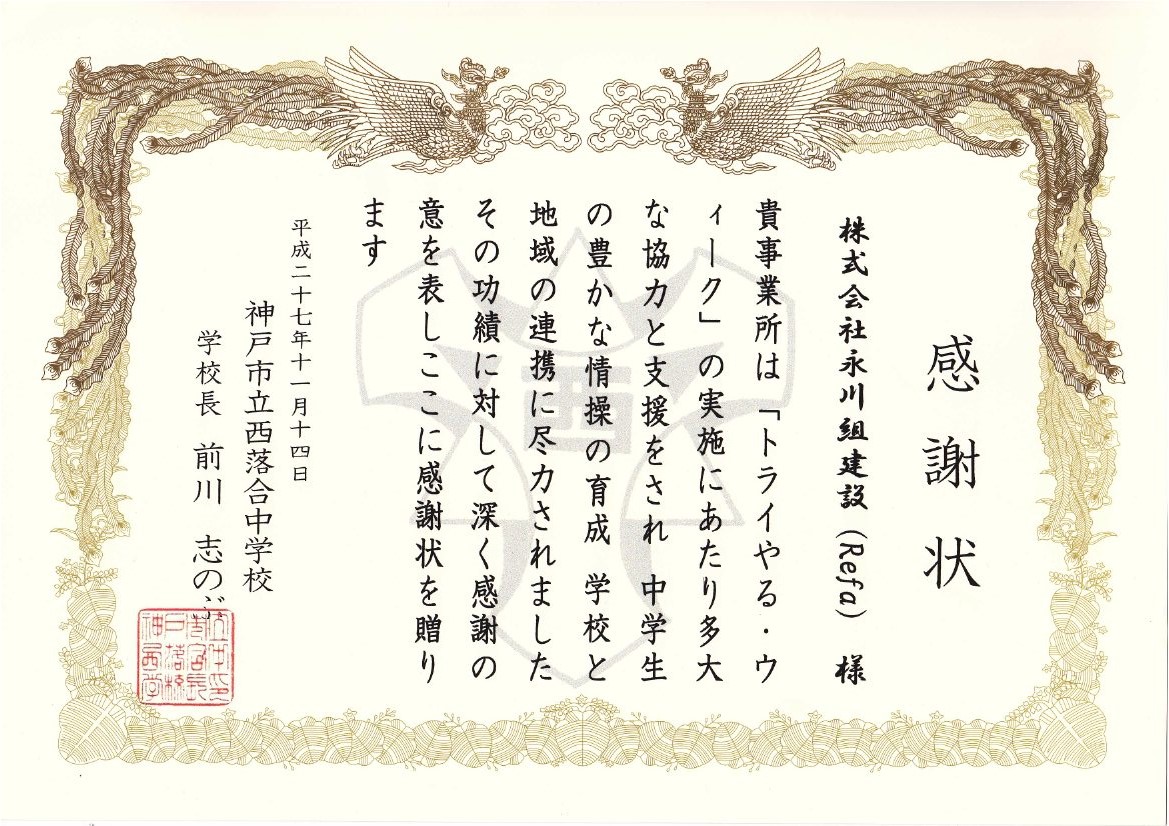 感謝状
株式会社永川組建設（Refa）　様
貴事業所は「トライやる・ウ
ィーク」の実施にあたり多大
な協力と支援をされ　中学生
の豊かな情操の育成　学校と
地域の連携に尽力されました
その功績に対して深く感謝の
意を表しここに感謝状を贈り
ます
平成二十七年十一月十四日
神戸市立西落合中学校
学校長　前川　志の
西